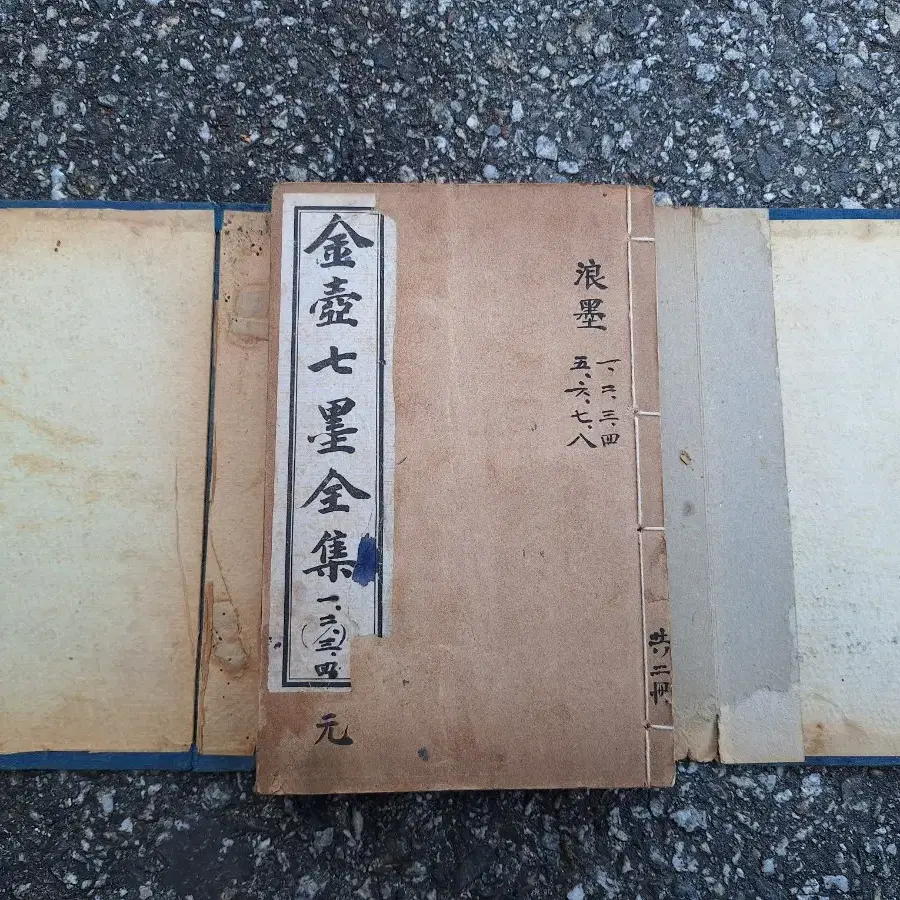 浪墨
一、二、三、四
五、六、七、八
共二冊
金壺七墨全集
一、二、三、四
元